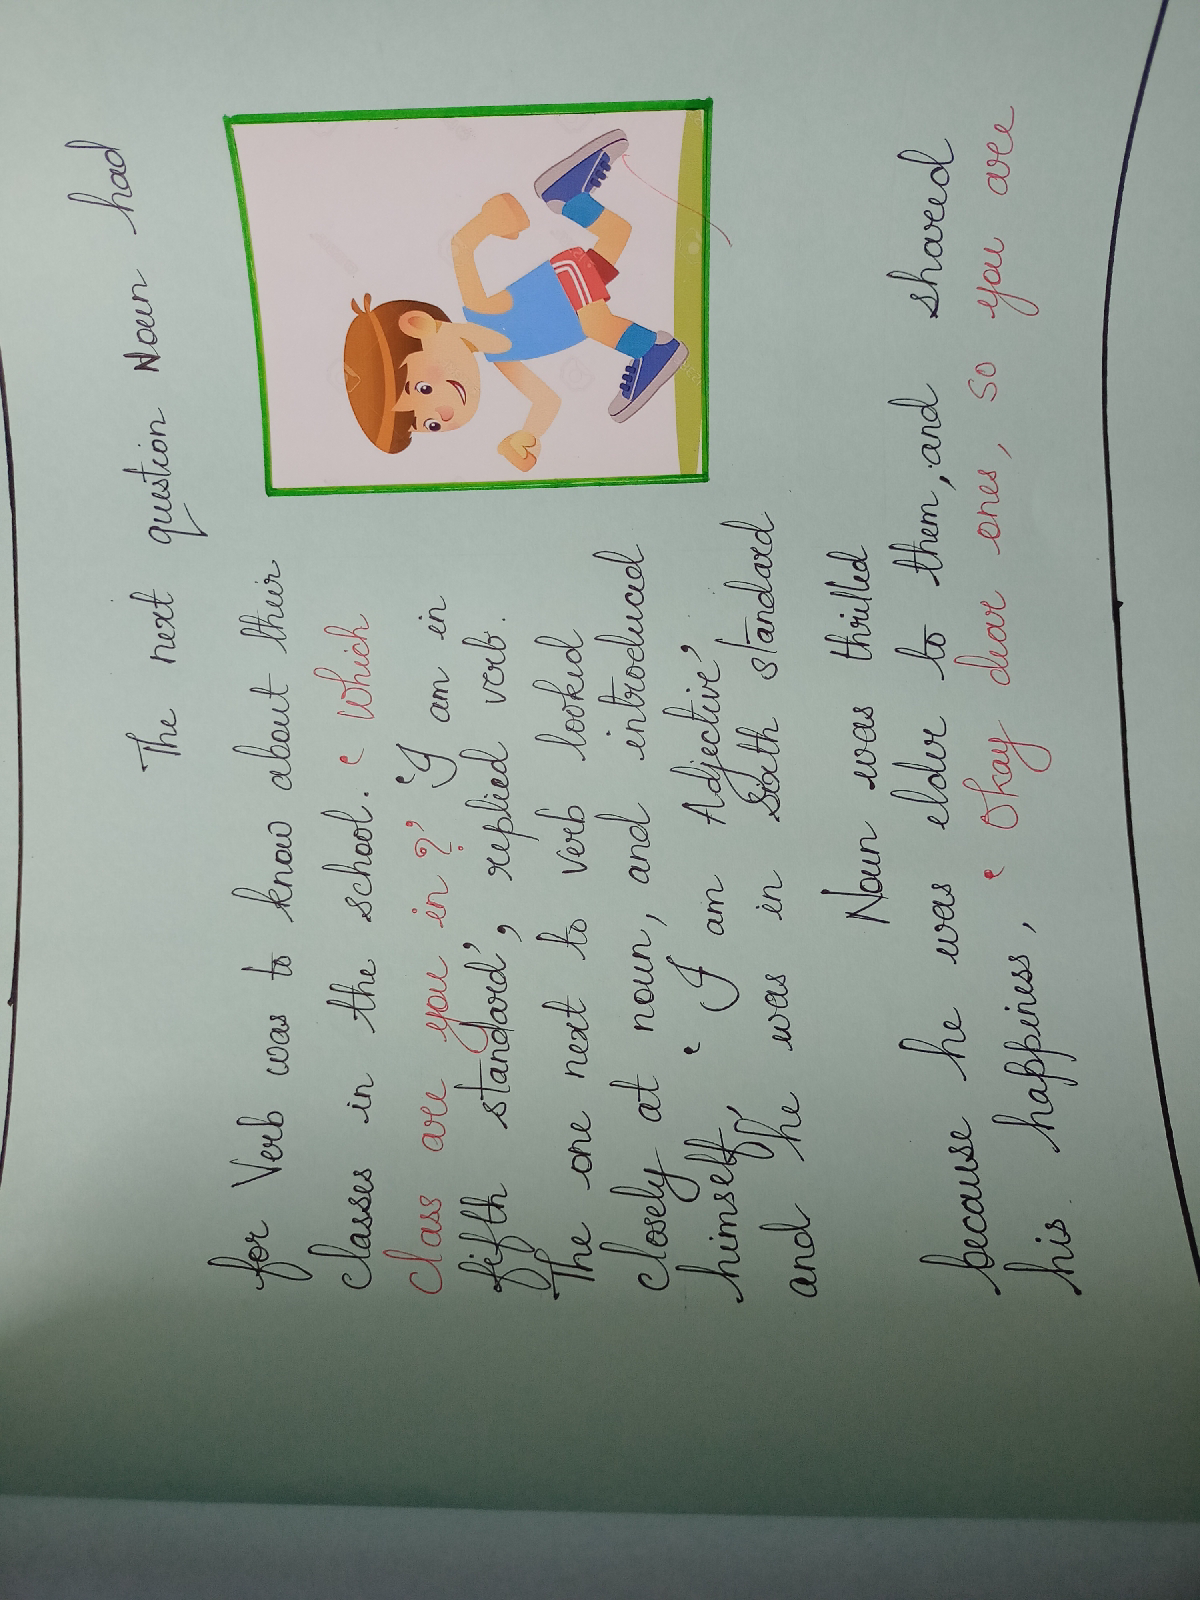 The next question Noun had
for Verb was to know about their
classes in the school. ‘ Which
class are you in ?’ ‘I am in
fifth standard’, replied verb.
The one next to verb looked
closely at noun, and introduced
himself, ‘ I am Adjective’
and he was in Sixth standard
Noun was thrilled
because he was elder to them, and shared
his happiness, ‘ Okay dear ones, so you are